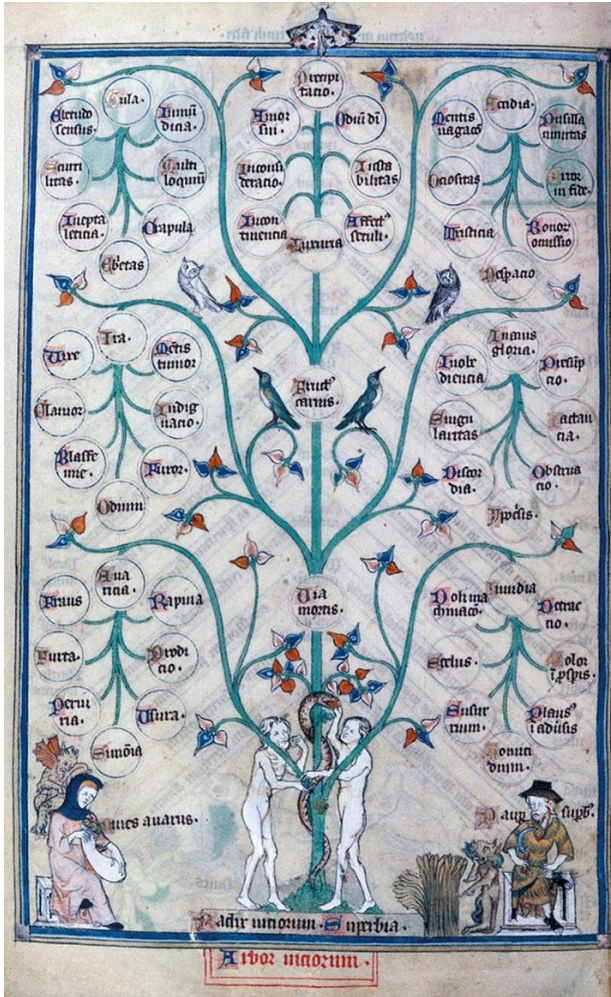 Gula.
Ebetudo
sensus.
Inmu̅
dicia.
Scurri
litas.
Multi
loquiu̅
Inepta
leticia.
Crapula
Ebetas
Precipi
tacio.
Amor
sui.
Odiu̅ di̅
Inconsi
deracio.
Insta
bilitas
Incon
tinentia
Affect⁹
seculi.
Luxuria
Accidia.
Mentis
uagac̅o
Pusilla
nimitas
Ociositas
Error
in fide.
Tristicia
Bonor̅
omissio
Despacio
Fruct⁹
carnis.
Ira.
Rixe
Me̅tis
tumor
Clamor
Indig
nacio.
Blasfe
mie.
Furor.
Odium
Inanis
gloria.
Inobe
diencia
Presu̅p
cio.
Singu
laritas
Iactan
cia.
Discor
dia.
Obstina
cio.
Ypoc̅sis.
Via
mortis.
Aua
ricia.
Fraus
Rapina
Furta.
Prodi
cio.
Periu
ria.
Usura.
Simo̅ia
Inuidia
Doli ma
chinac̅o.
Detrac
cio.
Scelus.
Dolor
i̅ p̅spis.
Susur
rium.
Plaus⁹
i̅ adu̅sis
Homici
dium.
Diues auarus.
Paup̅ sup̅b⁹.
Radix uiciorum. Superbia.
Arbor uiciorum.